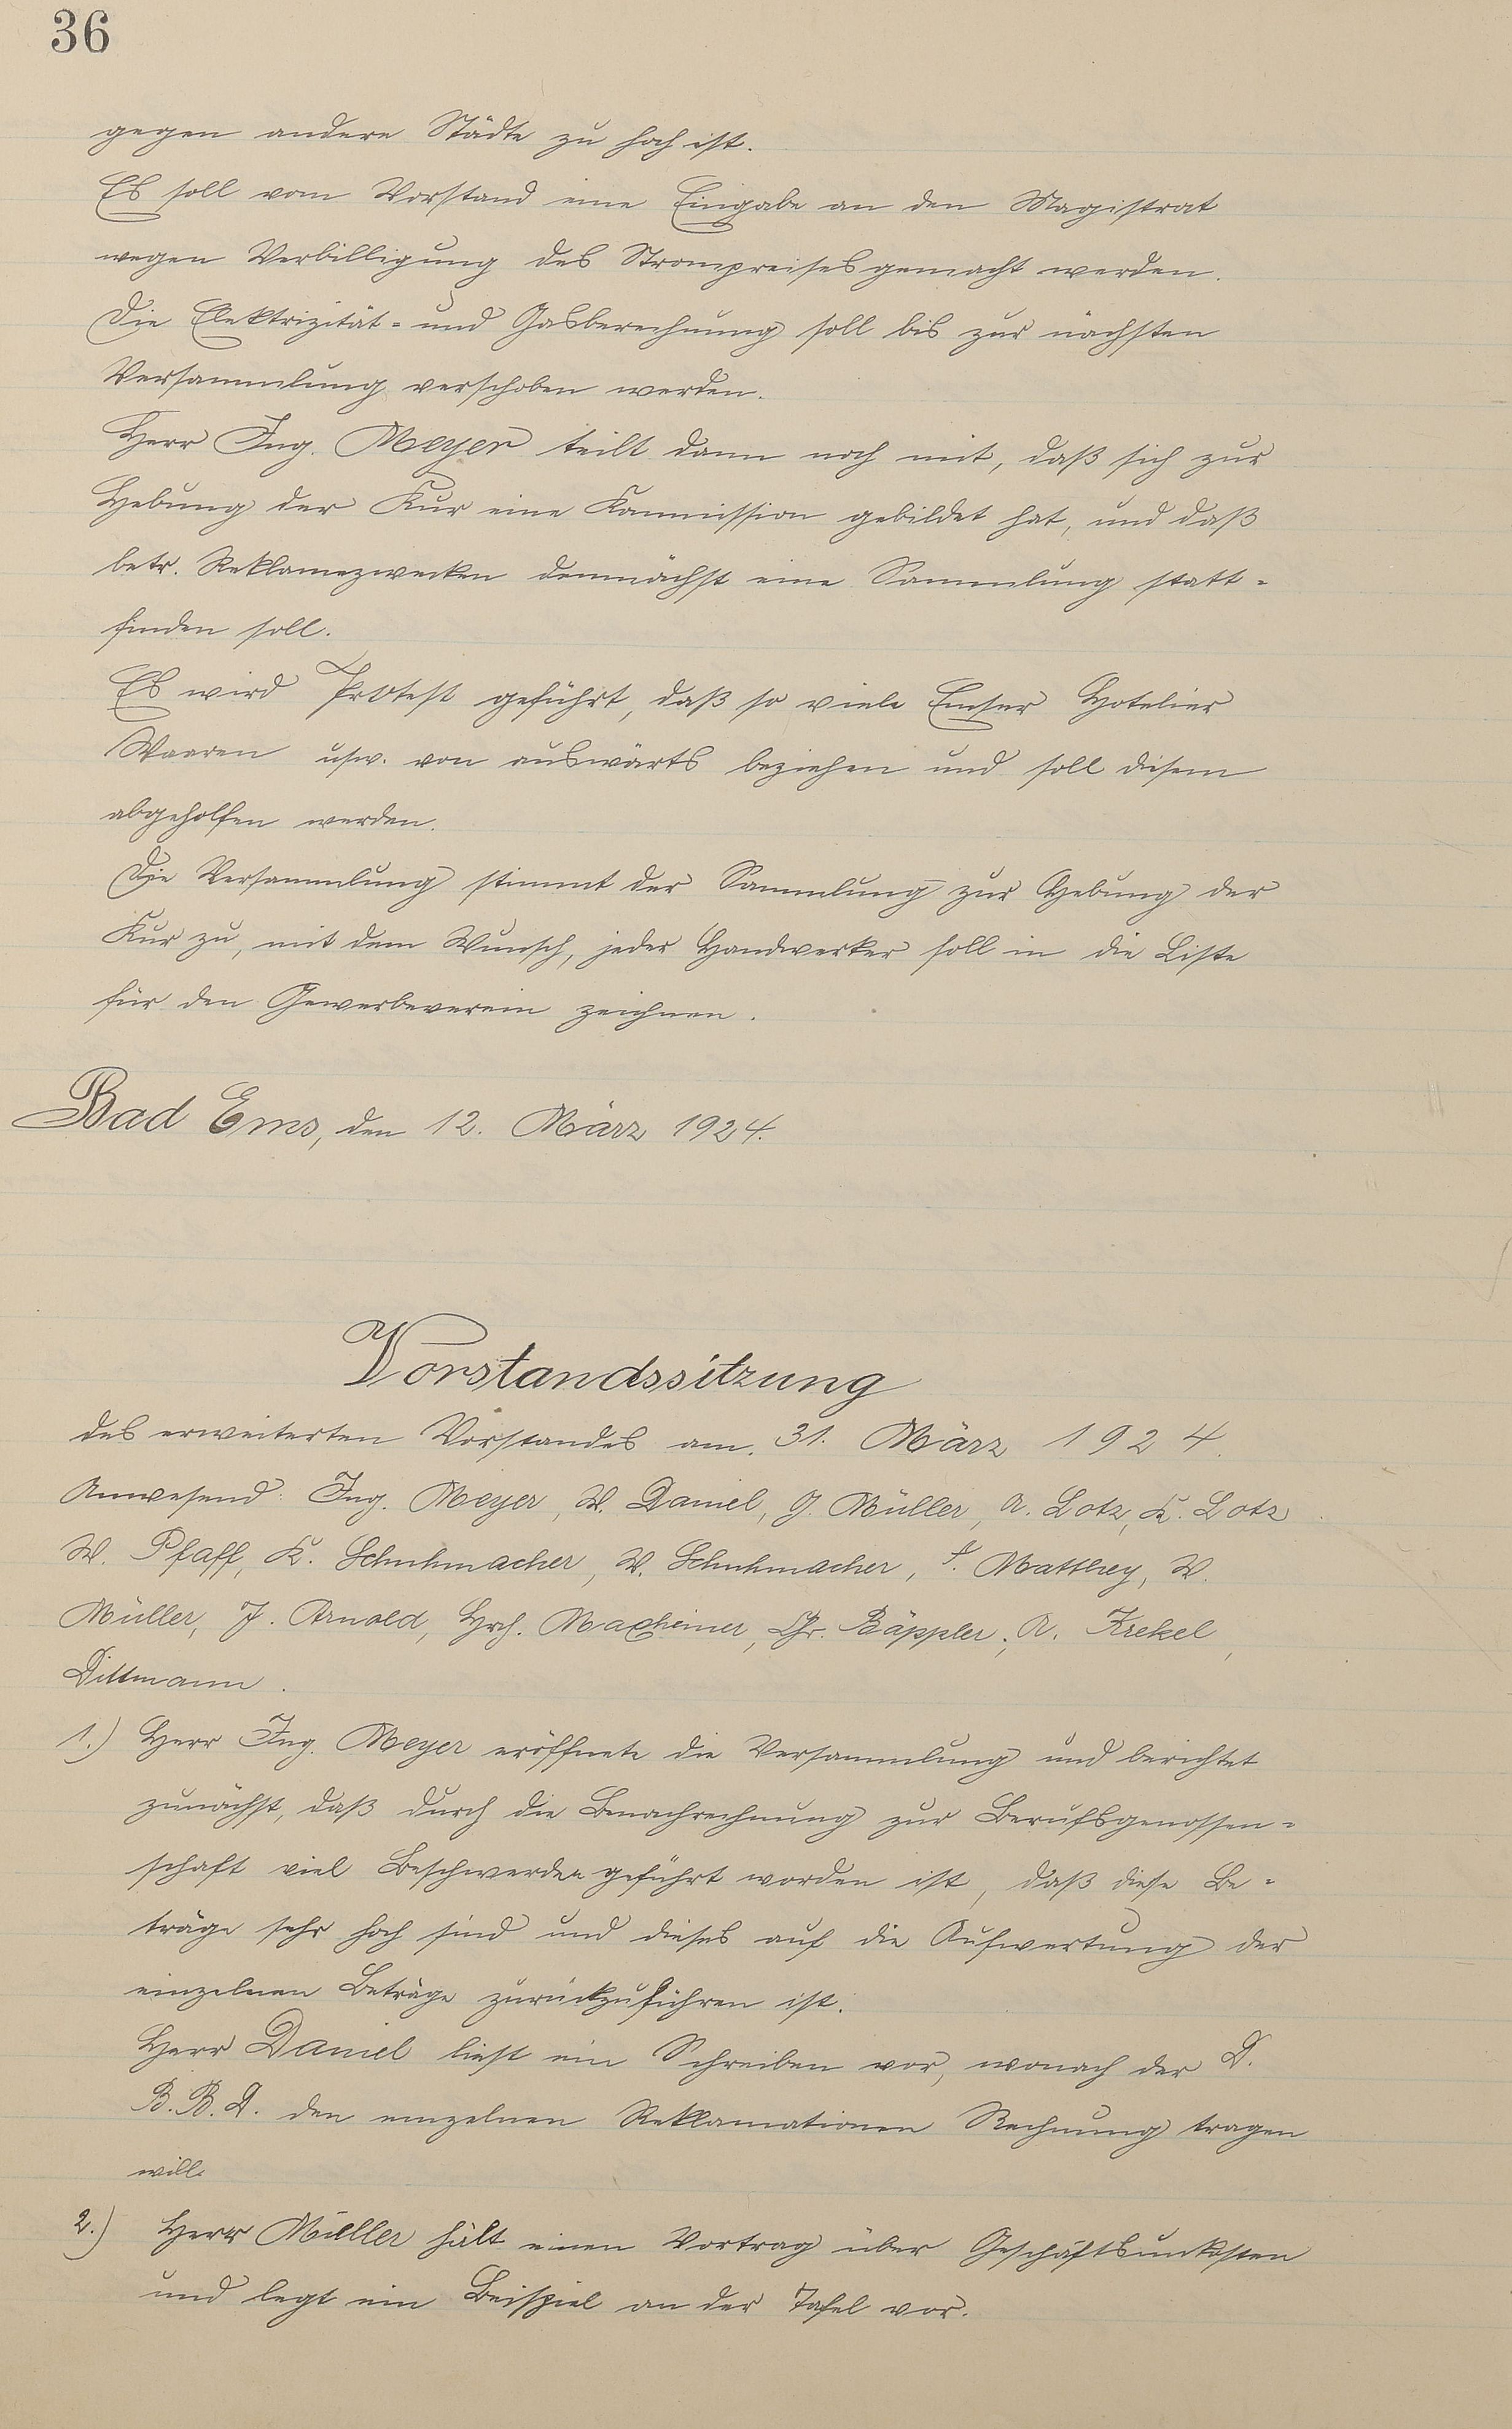 36
gegen andere Städte zu hoch ist.
Es soll vom Vorstand eine Eingabe an den Magistrat
wegen Verbilligung des Strompreises gemacht werden.
Die Elektrizität= und Gasberechnung soll bis zur nächsten
Versammlung verschoben werden.
Herr Ing. Meyer teilt dann noch mit, daß sich zur
Hebung der Kur eine Kommission gebildet hat, und daß
betr. Reklamezwecken demnächst eine Sammlung statt=
finden soll.
Es wird Protest geführt, daß so viele Emser Hotelier
Waaren usw. von auswärts beziehen und soll diesem
abgeholfen werden.
Die Versammlung stimmt der Sammlung zur Hebung der
Kur zu, mit dem Wunsch, jeder Handwerker soll in die Liste
für den Gewerbeverein zeichnen.
Bad Ems, den 12. März 1924.
Vorstandssitzung
des erweiterten Vorstandes am. 31. März 1924.
Anwesend: Ing. Meyer, W. Daniel, J. Müller, A. Lotz, K. Lotz
W. Pfaff, K. Schuhmacher, W. Schuhmacher, F. Matthey, W.
Müller, J. Arnold, Hrch. Maxheimer, Chr. Bäppler, A. Krekel,
Dittmann.
1.) Herr Ing. Meyer eröffnete die Versammlung und berichtet
zunächst, daß durch die Benachrechnung zur Berufsgenossen=
schaft viel Beschwerden geführt worden ist, daß diese Be=
träge sehr hoch sind und dieses auf die Aufwertung der
einzelnen Beträge zurückzuführen ist.
Herr Daniel liest ein Schreiben vor, wonach der D.
B.B.D. den einzelnen Reklamationen Rechnung tragen
will.
2.) Herr Müller hält einen Vortrag über Geschäftsunkosten
und legt ein Beispiel an der Tafel vor.